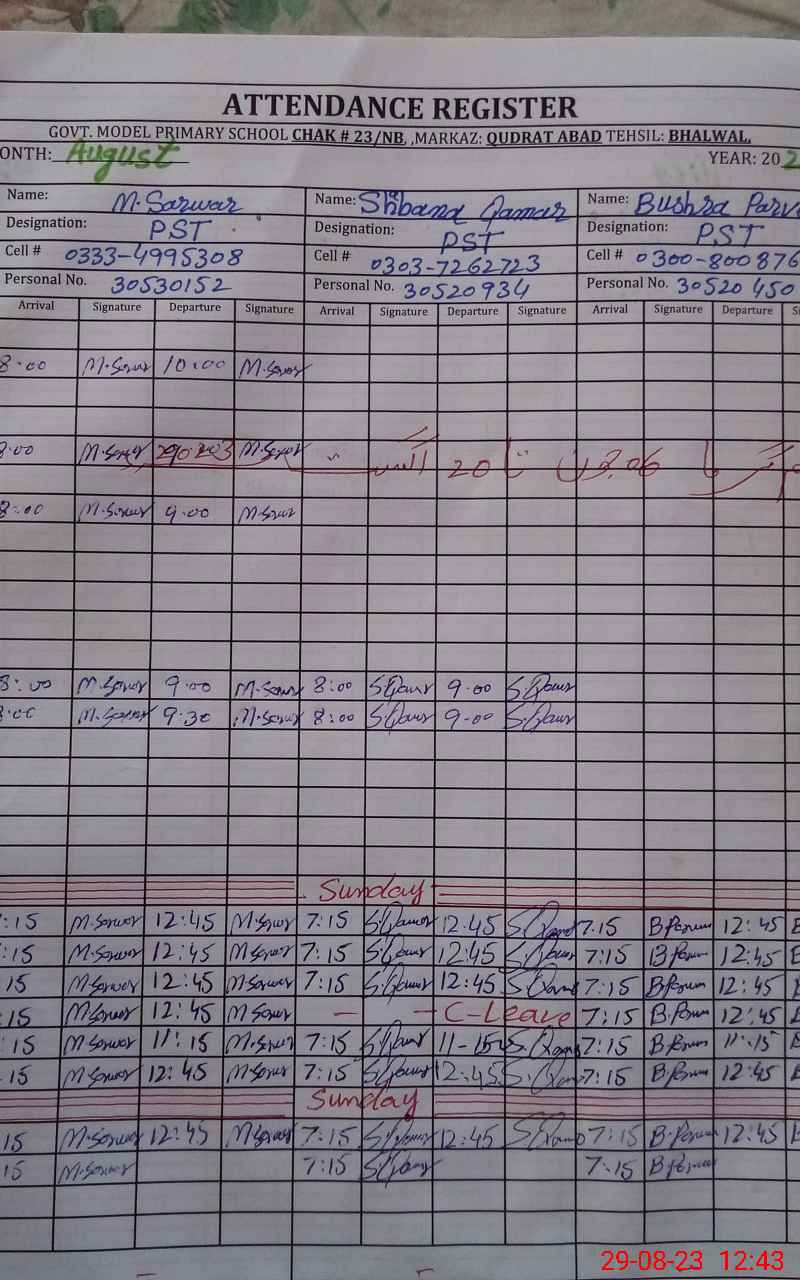 ATTENDANCE REGISTER
GOVT. MODEL PRIMARY SCHOOL CHAK # 23/NB, ,MARKAZ: QUDRAT ABAD TEHSIL: BHALWAL,
ONTH: August YEAR: 202
Name: M.Sarwar Name: Shbana Qamar Name: Bushra Parv
Designation: PST Designation: PST Designation: PST
Cell # 0333-4995308 Cell # 0303-7262723 Cell # 0300-800876
Personal No. 30530152 Personal No. 30520934 Personal No. 30520450
Arrival Signature Departure Signature Arrival Signature Departure Signature Arrival Signature Departure Si
8:00 M.Sarwar 10:00 M.Sarwar
8:00 M.Sarwar M.Sarwar
06 جون تا 20 اگست
8:00 M.Sarwar 9:00 M.Sarwar
8:00 M.Sarwar 9:00 M.Sarwar 8:00 S.Qamar 9:00 S.Qamar
8:00 M.Sarwar 9:30 M.Sarwar 8:00 S.Qamar 9:00 S.Qamar
Sunday
:15 M.Sarwar 12:45 M.Sarwar 7:15 S.Qamar 12:45 S.Qamar 7:15 B.Parveen 12:45 B
:15 M.Sarwar 12:45 M.Sarwar 7:15 S.Qamar 12:45 S.Qamar 7:15 B.Parveen 12:45 B
15 M.Sarwar 12:45 M.Sarwar 7:15 S.Qamar 12:45 S.Qamar 7:15 B.Parveen 12:45
:15 M.Sarwar 12:45 M.Sarwar — — C-Leave 7:15 B.Parveen 12:45 B
:15 M.Sarwar 11:15 M.Sarwar 7:15 S.Qamar 11-15 S.Qamar 7:15 B.Parveen 11:15 B
:15 M.Sarwar 12:45 M.Sarwar 7:15 S.Qamar 12:45 S.Qamar 7:15 B.Parveen 12:45 B
Sunday
15 M.Sarwar 12:45 M.Sarwar 7:15 S.Qamar 12:45 S.Qamar 7:15 B.Parveen 12:45 B
15 M.Sarwar 7:15 S.Qamar 7:15 B.Parveen
29-08-23 12:43